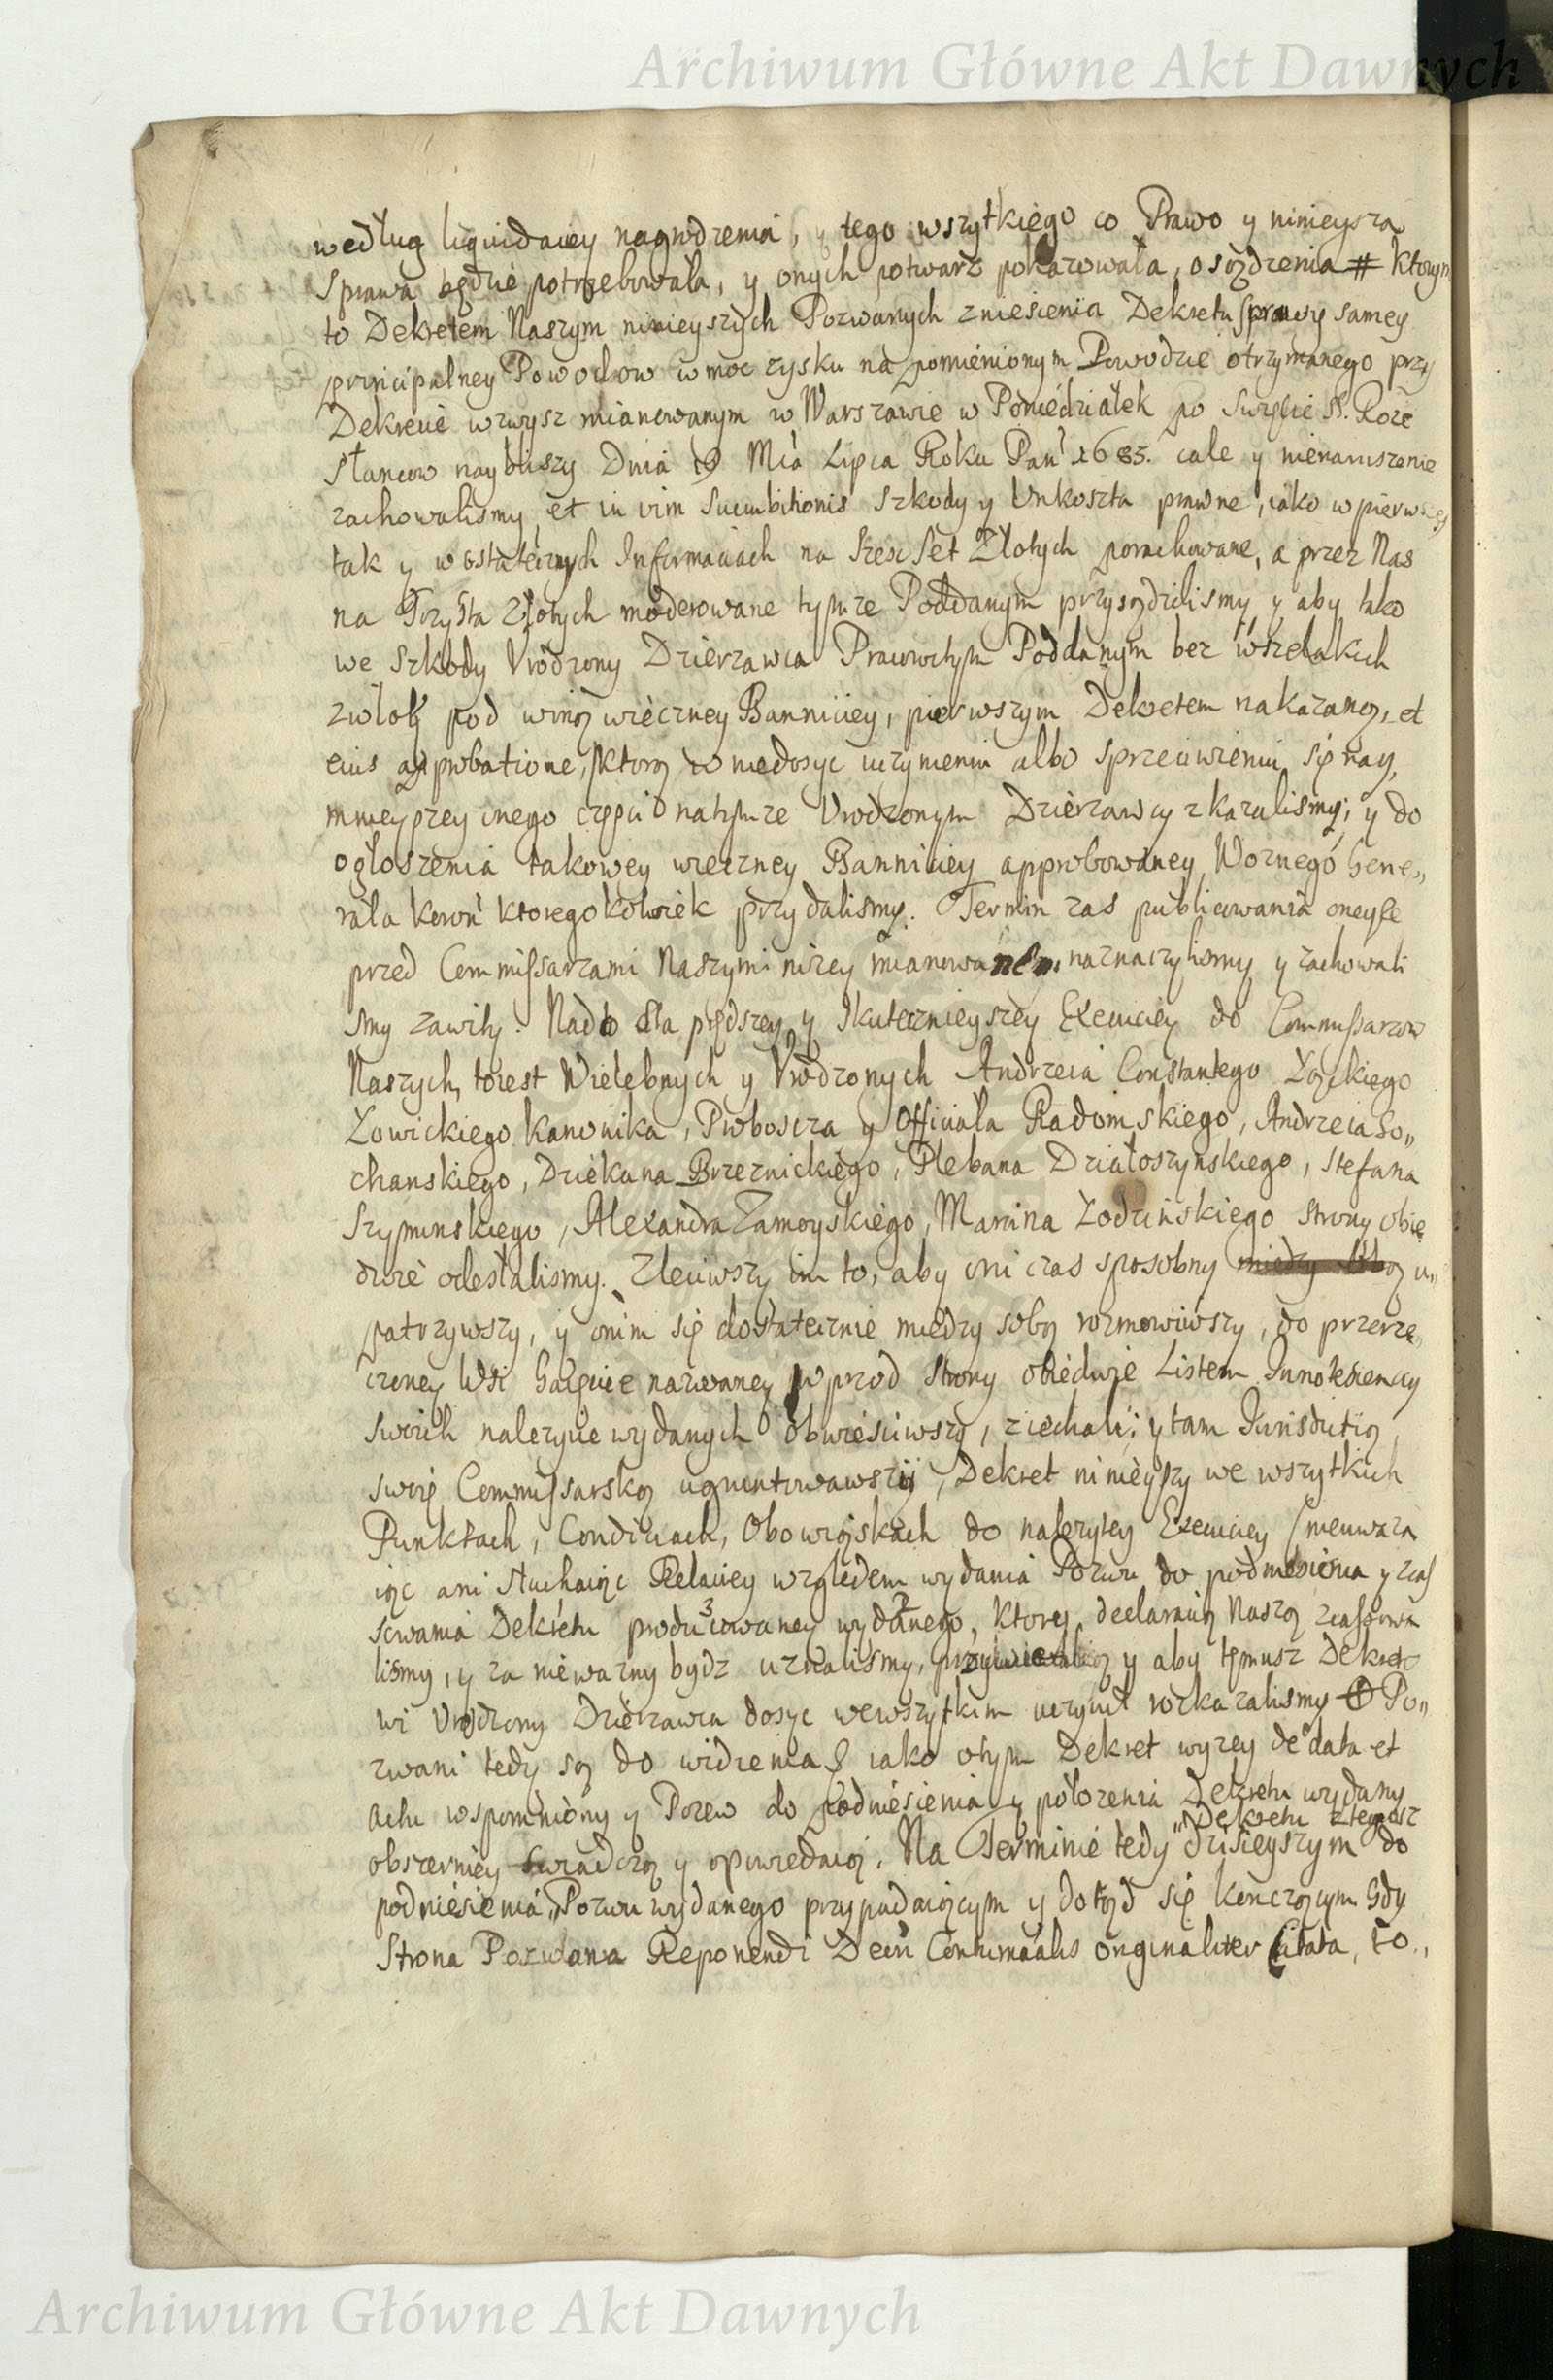 Archiwum Główne Akt Dawnych
według liquidacyey nagrodzenia, y tego wszytkiego co Prawo y ninieysza
Sprawa będzie potrzebowała, y onych potwarz pokazowała, osądzenia # ktorym
to Dekretem Naszym ninieyszych Pozwanych zniesienia Dekretu sprawy samey
principalney Powodow w moc zysku na pomienionym Powodzie otrzymanego przy
Dekrecie wzwysz mianowanym w Warszawie w Poniedziałek po Swięcie SS. Roze
słancow naybliszy Dnia 19 Mca Lipca Roku Pań 1685. cale y nienaruszenie
zachowalismy, et in vim succubitionis szkody y Unkoszta prawne, iako w pierwszey
tak y w ostatecznych Informaciach na szesc set Złotych porachowane, a przez Nas
na Trzysta Złotych moderowane tymze Poddanym przysądzilismy, y aby tako
we szkody Vrodzony Dzierzawca Pracowitym Poddanym bez wszelakich
zwłok pod winą wieczney Banniciey, pierwszym Dekretem nakazaną, et
eius approbatione, ktorą w niedosyc uczynieniu albo sprzeciwieniu się nay,
mnieyszey inego części natymze Vrodzonym Dzierzawcy zkazalismy; y do
ogłoszenia takowey wieczney Banniciey approbowaney Woznego Gene„
rała Koroń ktoregokolwiek przydalismy. Termin zas publicowania oneyse
przed Commissarzami Naszymi nizey mianowanem. naznaczylismy y zachowali
smy zawity. Nadto dla prędszey y skutecznieyszey Execuciey do Commissarzow
Naszych, toiest Wielebnych y Vrodzonych Andrzeia Constantego Ząckiego
Łowickiego Kanonika, Proboscza y Officiała Radomskiego, Andrzeia So„
chanskiego, Dziekana Brzeznickiego, Plebana Działoszynskiego, Stefana
Szyminskiego, Alexandra Zamoyskiego, Marcina Łodzińskiego Strony obie
dwie odesłalismy. Zleciwszy im to, aby oni czas sposobny u„
patrzywszy, y onim się dostatecznie miedzy sobą rozmowiwszy, do przerze„
czoney Wsi nazwaney wprzod Strony obiedwie Listem Innotescency
swoich nalezycie wydanych obwiesciwszy, ziechali; y tam Iurisdictią
swoię Commissarską ugruntowawszy, Dekret ninieyszy we wszytkich
Punktach, Condiciach, Obowiąskach do nalezytey Execuciey (nieuwaza
iąc ani słuchaiąc Relaciey względem wydania Pozwu do podniesienia y zas
sowania Dekretu produ3cowaney wyda2nego, ktorą declaracią Naszą zcassowa
lismy, y za niewazny bydz uznalismy, y aby temusz Dekreto
wi Vrodzony Dzierzawca dosyc wewszytkim uczynił rozkazalismy Po„
zwani tedy są do widzenia iako otym Dekret wyzey de data et
actu wspomniony y Pozew do podniesienia y połozenia Dekretu wydany
obszerniey swiadczą y opowiedaią. Na Terminie tedy dzisieyszym do
„Dekretu ztegosz
podniesienia„ Pozwu wydanego przypadaiącym y dotąd się konczącym Gdy
Strona Pozwana Reponendi Decŭ Contumacialis originaliter Citata, to„
Archiwum Główne Akt Dawnych